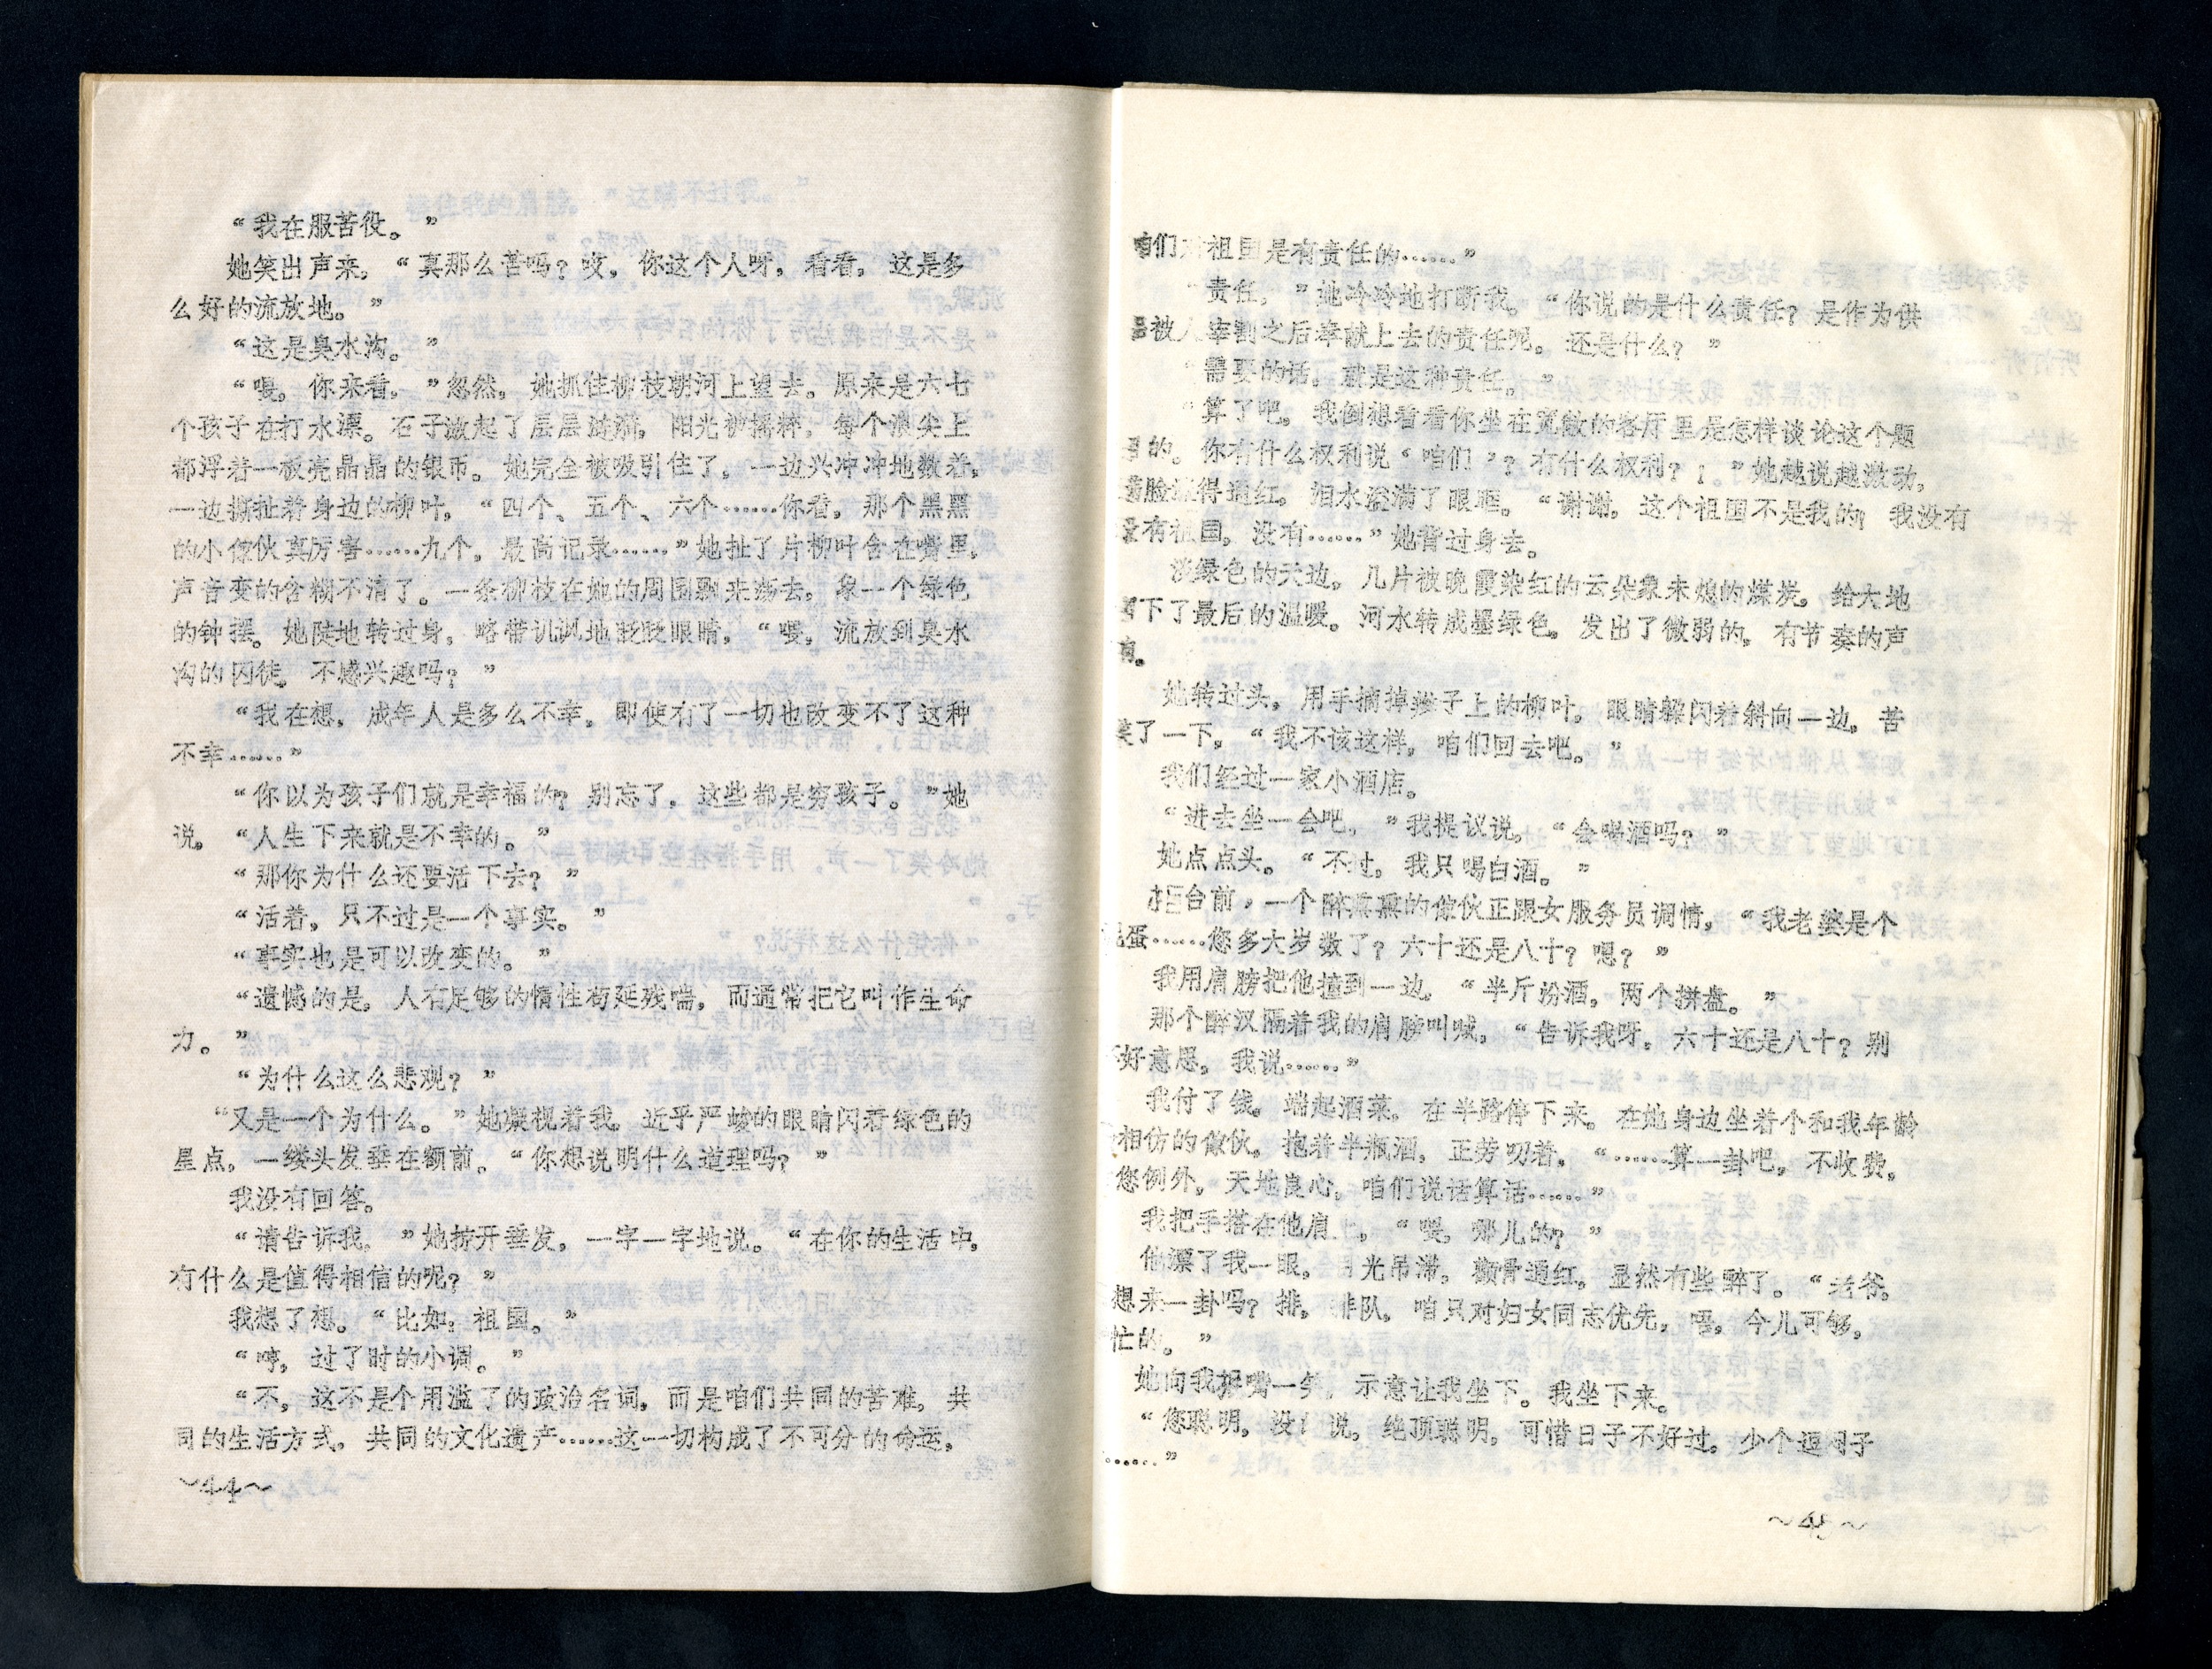 “我在服苦役。”
她笑出声来，“真那么苦吗？哎，你这个人呀，看看，这是多
么好的流放地。”
“这是臭水沟。”
“嗳，你来看，”忽然，她抓住柳枝朝河上望去。原来是六七
个孩子在打水漂。石子激起了层层涟漪，阳光被揉碎，每个浪尖上
都浮着一板亮晶晶的银币。她完全被吸引住了，一边兴冲冲地数着，
一边撕扯着身边的柳叶，“四个、五个、六个……你看，那个黑黑
的小傢伙真厉害……九个，最高记录……”她扯了片柳叶含在嘴里，
声音变的含糊不清了。一条柳枝在她的周围飘来荡去，象一个绿色
的钟摆。她陡地转过身，略带讥讽地眨眨眼睛，“嗳，流放到臭水
沟的囚徒，不感兴趣吗？”
“我在想，成年人是多么不幸，即使有了一切也改变不了这种
不幸……”
“你以为孩子们就是幸福的？别忘了，这些都是穷孩子。”她
说。“人生下来就是不幸的。”
“那你为什么还要活下去？”
“活着，只不过是一个事实。”
“事实也是可以改变的。”
“遗憾的是，人有足够的惰性苟延残喘，而通常把它叫作生命
力。”
“为什么这么悲观？”
“又是一个为什么。”她凝视着我，近乎严峻的眼睛闪着绿色的
星点，一缕头发垂在额前。“你想说明什么道理吗？”
我没有回答。
“请告诉我，”她捋开垂发，一字一字地说。“在你的生活中，
有什么是值得相信的呢？”
我想了想。“比如：祖国。”
“哼，过了时的小调。”
“不，这不是个用滥了的政治名词，而是咱们共同的苦难，共
同的生活方式，共同的文化遗产……这一切构成了不可分的命运，
～44～
咱们对祖国是有责任的……”
“责任，”她冷冷地打断我。“你说的是什么责任？是作为供
品被人宰割之后奉献上去的责任呢，还是什么？”
“需要的话，就是这种责任。”
“算了吧，我倒想看看你坐在宽敞的客厅里是怎样谈论这个题
目的。你有什么权利说‘咱们’？有什么权利？！”她越说越激动，
脸涨得通红，泪水溢满了眼眶。“谢谢，这个祖国不是我的！我没有
没有祖国，没有……”她背过身去。
淡绿色的天边，几片被晚霞染红的云朵象未熄的煤炭，给大地
留下了最后的温暖。河水转成墨绿色，发出了微弱的，有节奏的声
响。
她转过头，用手摘掉辫子上的柳叶，眼睛躲闪着斜向一边，苦
笑了一下，“我不该这样，咱们回去吧。”
我们经过一家小酒店。
“进去坐一会吧，”我提议说，“会喝酒吗？”
她点点头。“不过，我只喝白酒。”
柜台前，一个醉熏熏的傢伙正跟女服务员调情，“我老婆是个
蛋……您多大岁数了？六十还是八十？嗯？”
我用肩膀把他撞到一边，“半斤汾酒，两个拼盘。”
那个醉汉隔着我的肩膀叫喊，“告诉我呀，六十还是八十？别
不好意思，我说……”
我付了钱，端起酒菜，在半路停下来。在她身边坐着个和我年龄
相仿的傢伙，抱着半瓶酒，正劳叨着，“……算一卦吧，不收费，
您例外，天地良心，咱们说话算话……”
我把手搭在他肩上，“嗳，哪儿的？”
他漂了我一眼，目光呆滞，颧骨通红，显然有些醉了。“老爷，
想来一卦吗？排，排队，咱只对妇女同志优先，唔，今儿可够，
忙的。”
她向我抿嘴一笑，示意让我坐下。我坐下来。
“您聪明，没！说，绝顶聪明，可惜日子不好过。少个逗闷子
……”